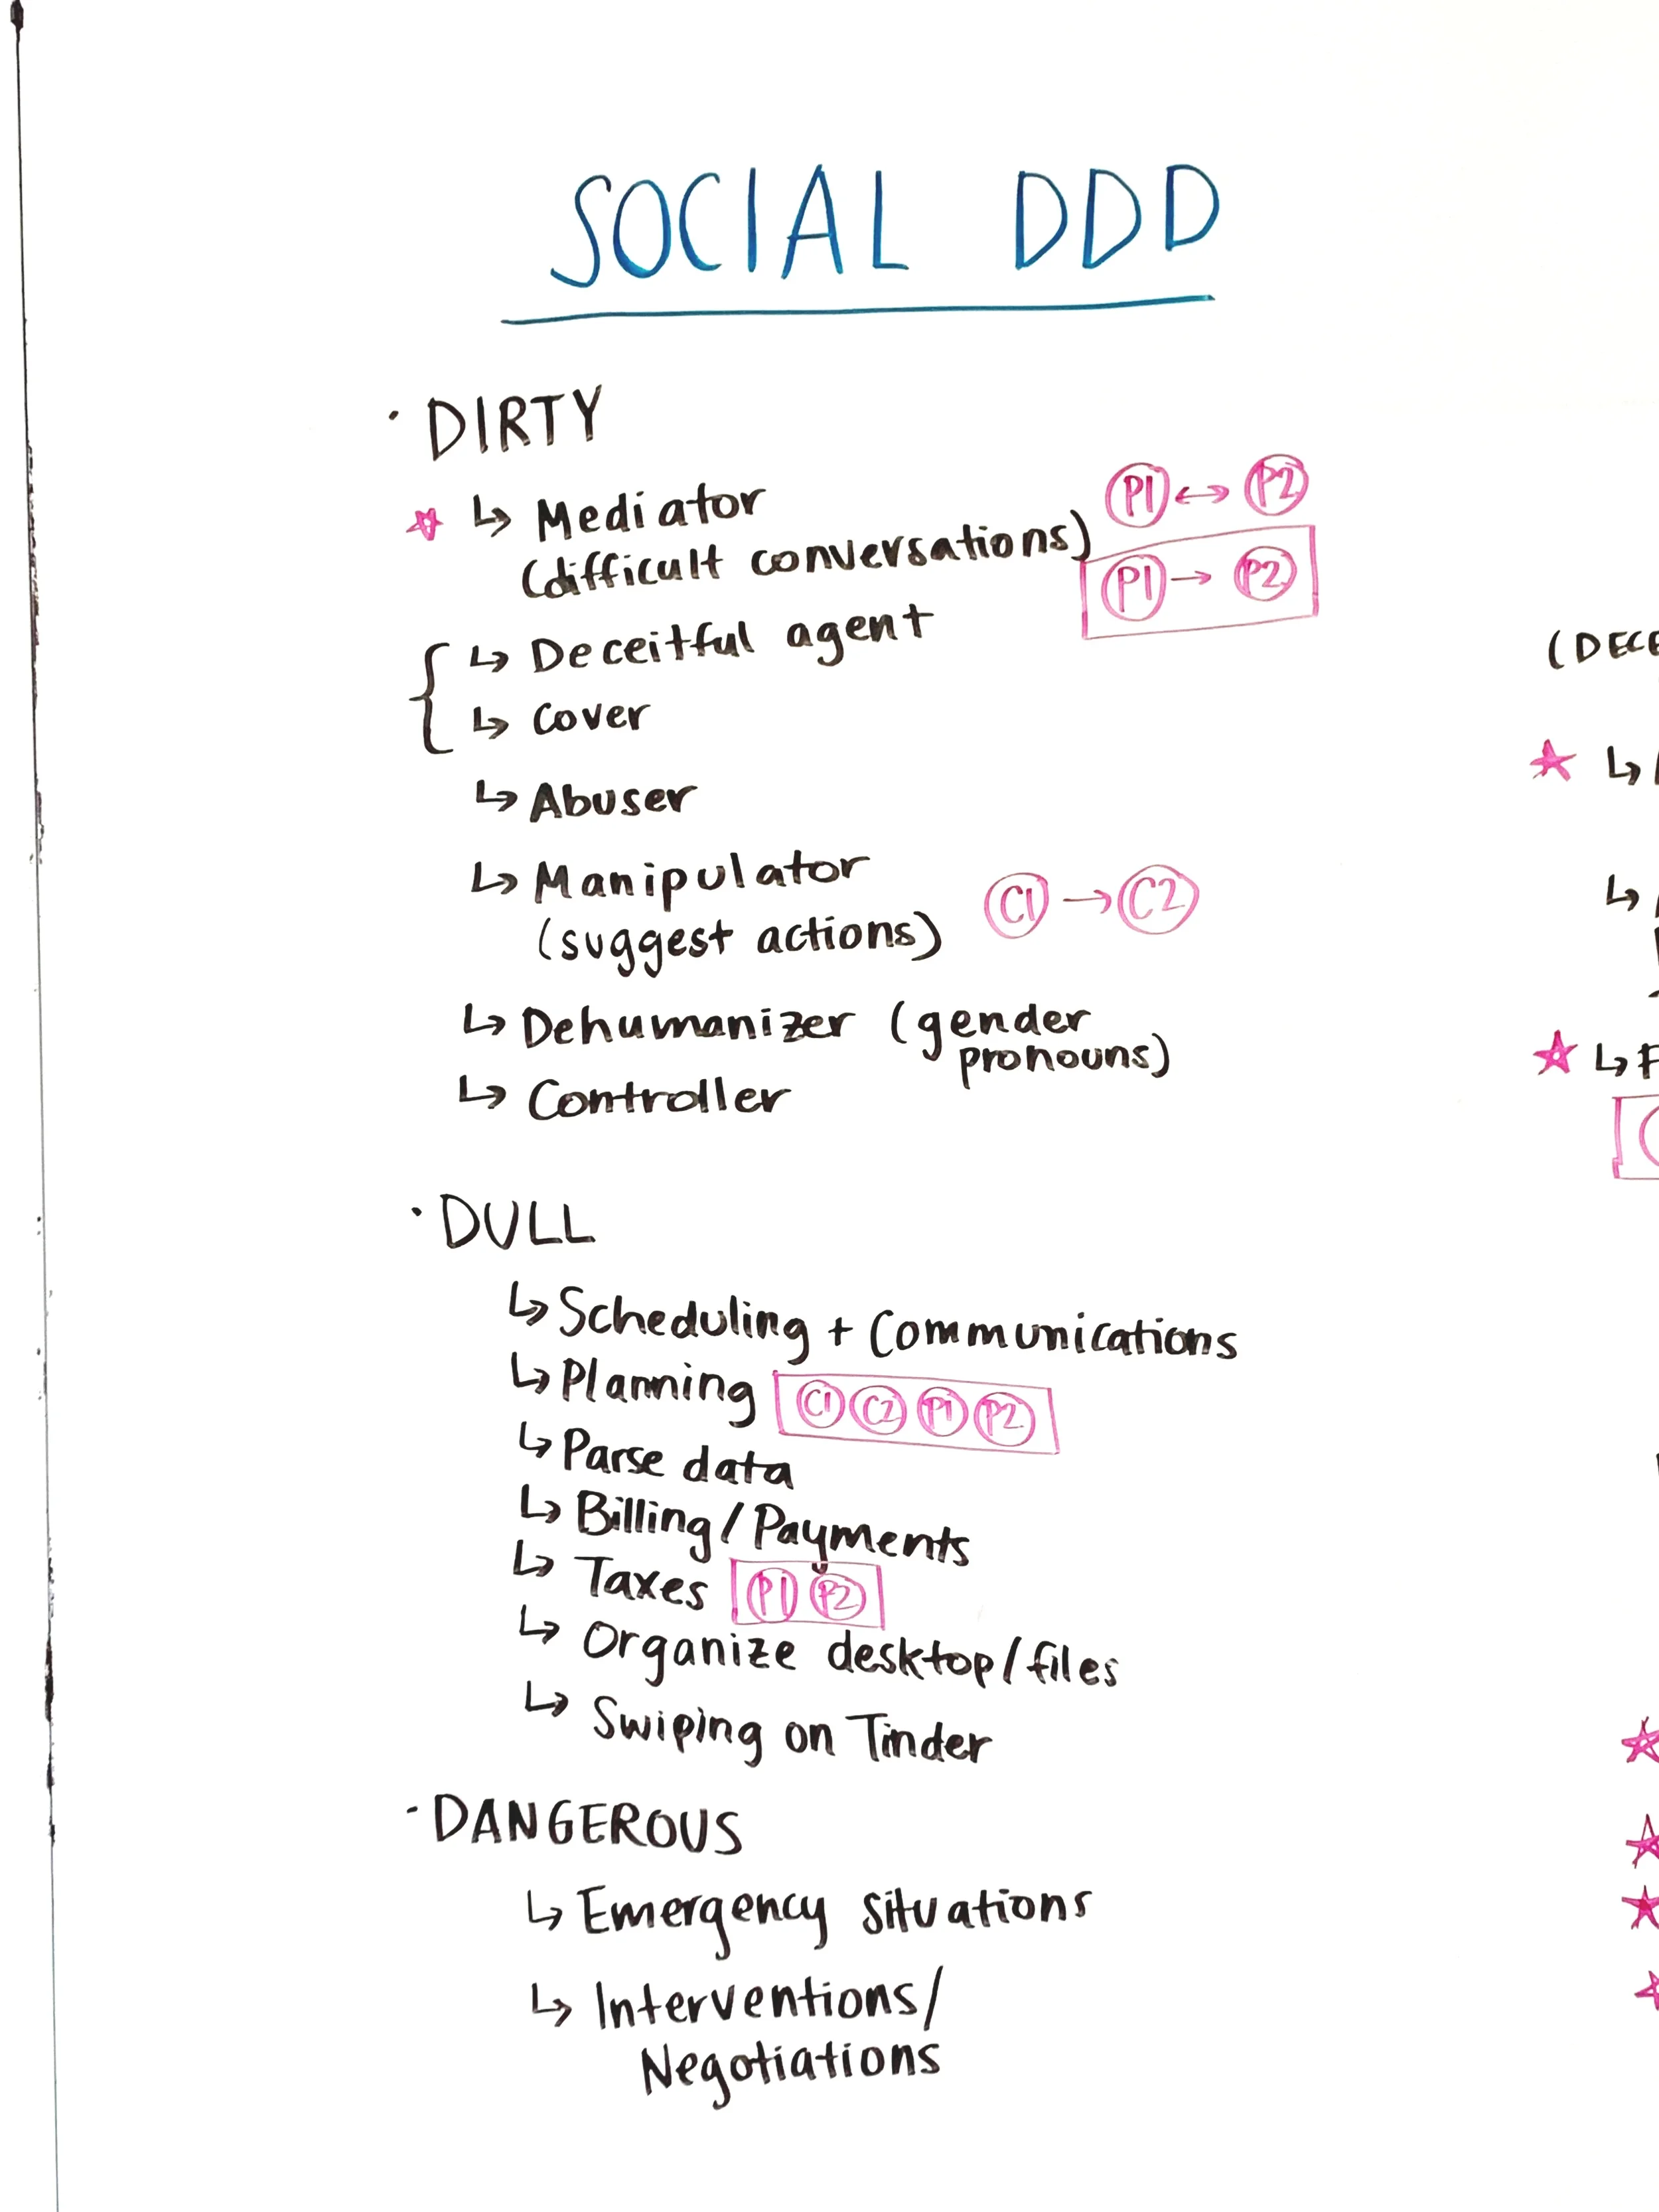 SOCIAL DDD
· DIRTY
↳ Mediator
(difficult conversations)
P1 ↔ P2
P1 → P2
↳ Deceitful agent
↳ Cover
↳ Abuser
↳ Manipulator
(suggest actions)
C1 → C2
↳ Dehumanizer (gender
pronouns)
↳ Controller
· DULL
↳ Scheduling + Communications
↳ Planning C1 C2 P1 P2
↳ Parse data
↳ Billing / Payments
↳ Taxes P1 P2
↳ Organize desktop/files
↳ Swiping on Tinder
· DANGEROUS
↳ Emergency situations
↳ Interventions/
Negotiations
(DECE